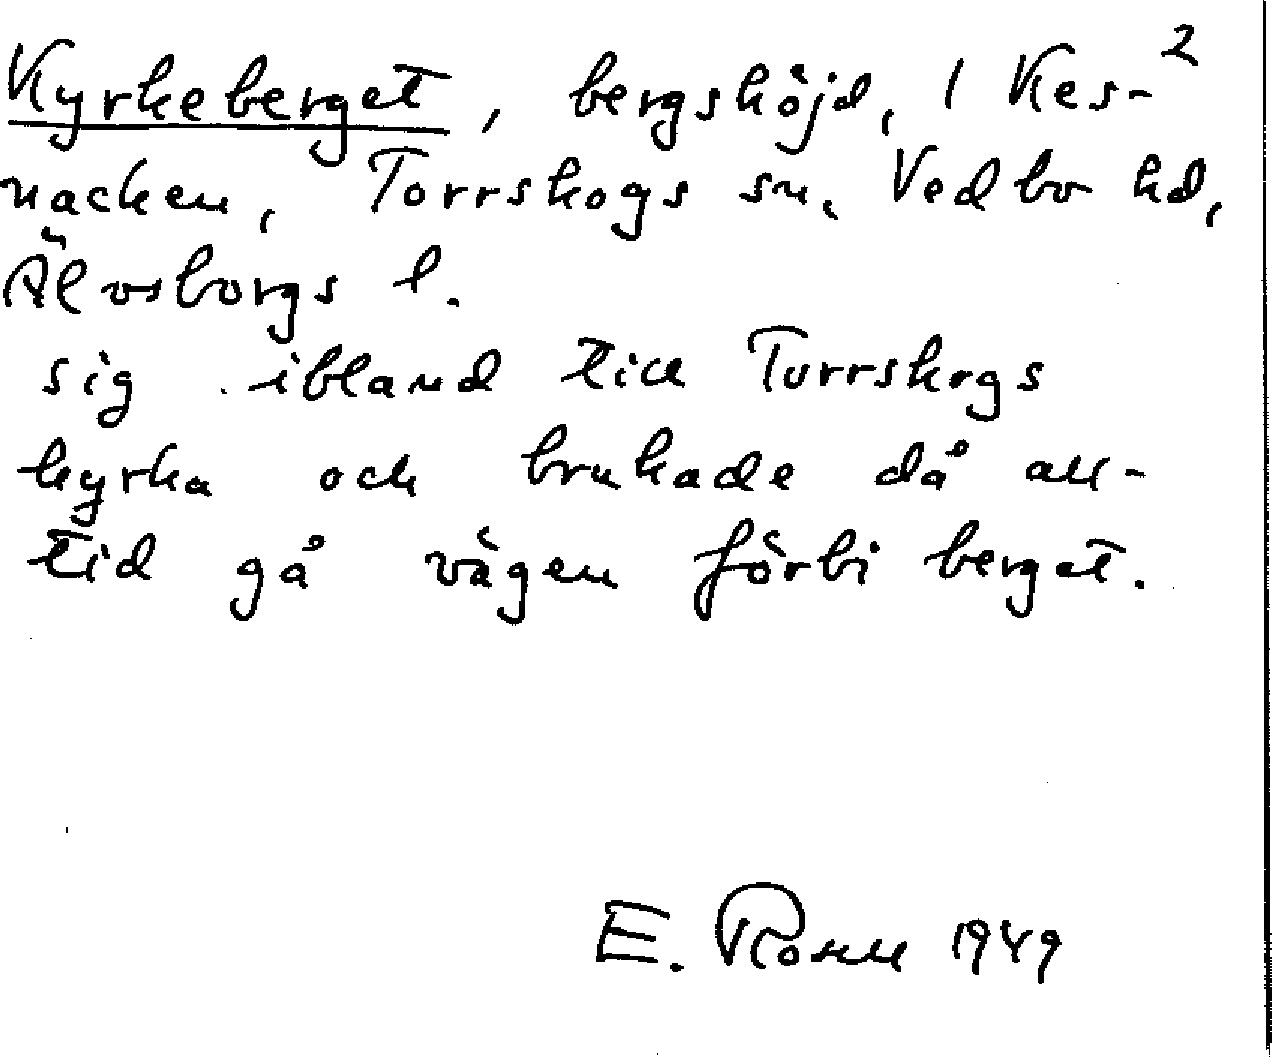 2
Kyrkeberget, bergshöjd, 1 Kes-
nacken, Torrskogs sn, Vedbo hd,
Älvsborgs l.
sig ibland till Torrskogs
kyrka och brukade då all-
tid gå vägen förbi berget.
E. Rosell 1949